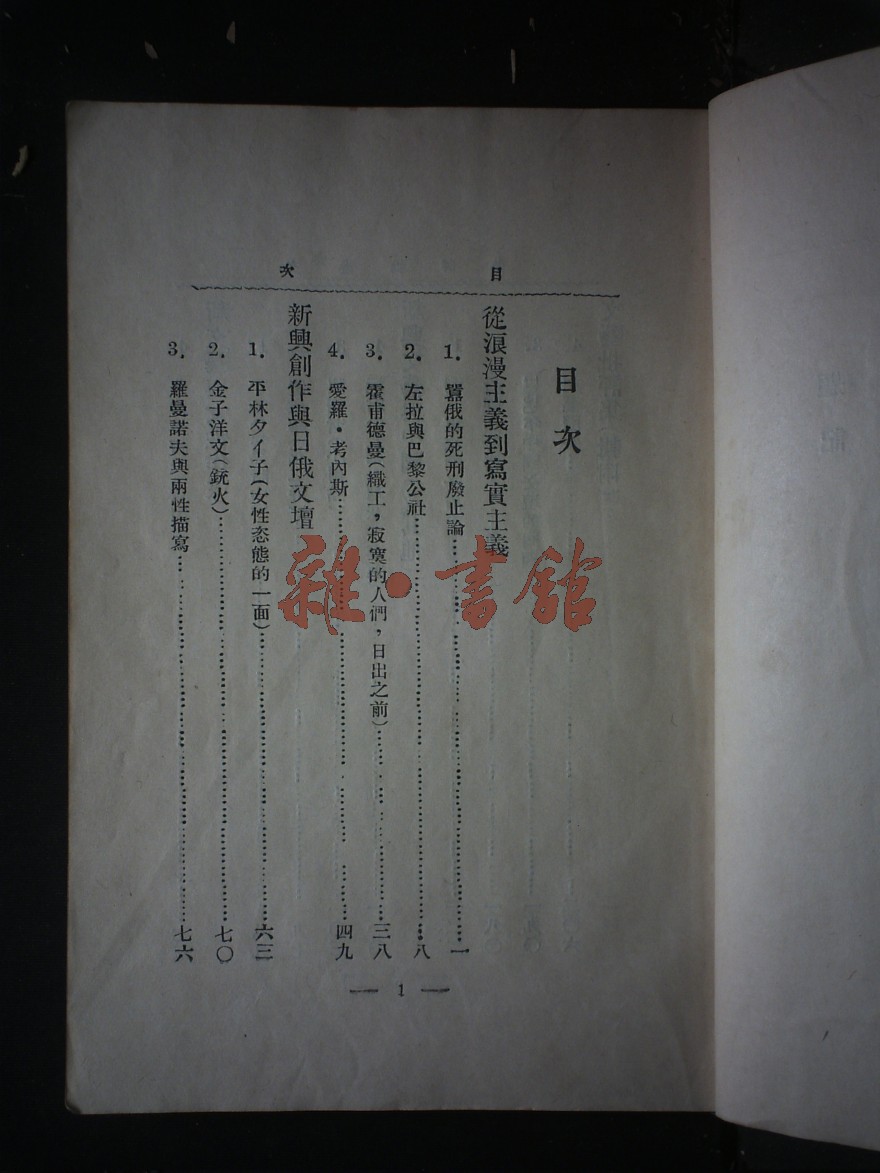 目 次
目次
從浪漫主義到寫實主義
1. 囂俄的死刑廢止論 一
2. 左拉與巴黎公社 八
3. 霍甫德曼(織工,寂寞的人們,日出之前) 三八
4. 愛羅・考內斯 四九
新興創作與日俄文壇
1. 平林夕イ子(女性恣態的一面) 六三
2. 金子洋文(銃火) 七〇
3. 羅曼諾夫與兩性描寫 七六
— 1 —
雜・書館